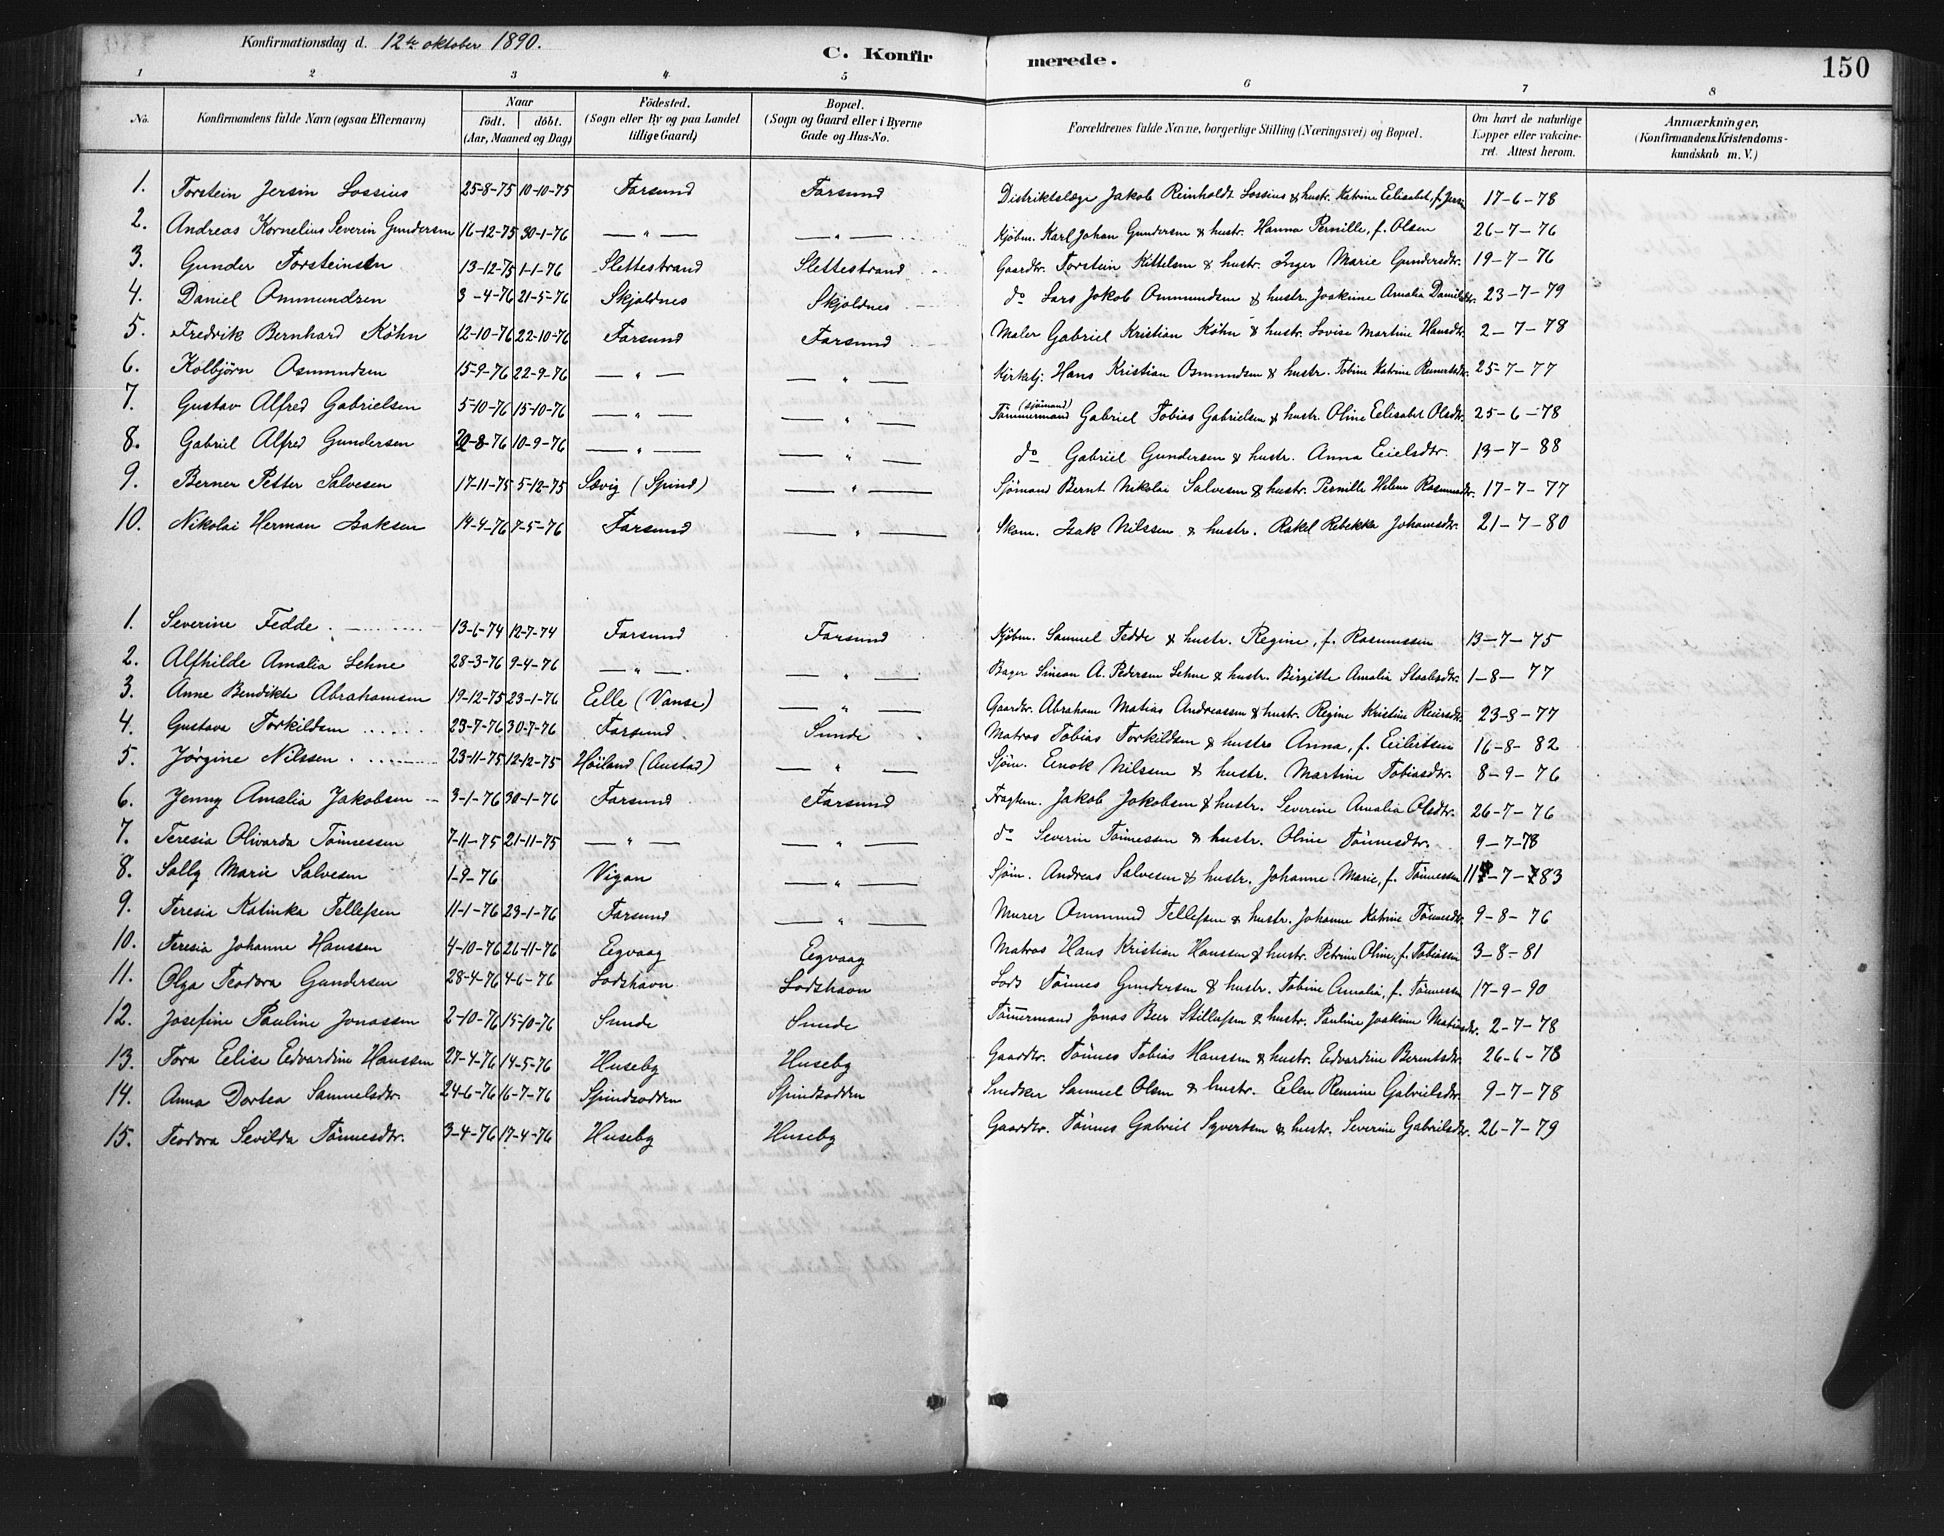 Konfirmationsdag d. 12te oktober 1890.
C. Konfirmerede.
150
1 2 3 4 5 6 7 8
No. Konfirmandens fulde Navn (ogsaa Efternavn) Naar födt. döbt. (Aar, Maaned og Dag) Födested. (Sogn eller By og paa Landet tillige Gaard) Bopæl. (Sogn og Gaard eller i Byerne Gade og Hus-No. Forældrenes fulde Navne, borgerlige Stilling (Næringsvei) og Bopæl. Om havt de naturlige Kopper eller vakcineret. Attest herom. Anmærkninger, (Konfirmandens Kristendomskundskab m. V.)
1. Torstein Jersin Lossius 25-8-75 10-10-75 Farsund Farsund Distriktslæge Jakob Reinholdt Lossius & hustr. Katrine Elisabet, f. Jersin 17-6-78
2. Andreas Kornelius Severin Gundersen 16-12-75 30-1-76 — " — — " — Kjøbm. Karl Johan Gundersen & hustr. Hanna Pernille, f. Olsen 26-7-76
3. Gunder Torsteinsen 13-12-75 1-1-76 Slettestrand Slettestrand Gaardbr. Torstein Kittelsen & hustr. Inger Marie Gundersdtr. 19-7-76
4. Daniel Ommundsen 3-4-76 21-5-76 Skjoldnes Skjoldnes do Lars Jakob Ommundsen & hustr. Joakine Amalia Danielsdtr. 23-7-79
5. Fredrik Bernhard Køhn 12-10-76 22-10-76 Farsund Farsund Maler Gabriel Kristian Køhn & hustr. Lovise Martine Hansdtr. 2-7-78
6. Kolbjørn Osmundsen 15-9-76 22-9-76 — " — — " — Kirketj. Hans Kristian Osmundsen & hustr. Tobine Katrine Reinertsdtr. 25-7-77
7. Gustav Alfred Gabrielsen 5-10-76 15-10-76 — " — — " — Tømmermand (Sjømand) Gabriel Tobias Gabrielsen & hustr. Oline Elisabet Olsdtr. 25-6-78
8. Gabriel Alfred Gundersen 20-8-76 10-9-76 — " — — " — do Gabriel Gundersen & hustr. Anna Eielsdtr. 13-7-88
9. Berner Petter Salvesen 17-11-75 5-12-75 Sævig (Spind) — " — Sjømand Bernt Nikolai Salvesen & hustr. Pernille Helene Rasmusdtr. 17-7-77
10. Nikolai Herman Isaksen 14-4-76 7-5-76 Farsund — " — Skom. Isak Nilssen & hustr. Rakel Rebekka Johannesdtr. 21-7-80
1. Severine Fedde 13-6-74 12-7-74 Farsund Farsund Kjøbm. Samuel Fedde & hustr. Regine, f. Rasmussen 13-7-75
2. Alfhilde Amalia Lehne 28-3-76 9-4-76 — " — — " — Bager Simon A. Pedersen Lehne & hustr. Birgitte Amalia Staalesdtr. 1-8-77
3. Anne Bendikte Abrahamsen 19-12-75 23-1-76 Elle (Vanse) — " — Gaardbr. Abraham Matias Andreassen & hustr. Regine Kristine Reiersdtr. 23-8-77
4. Gustava Torkildsen 23-7-76 30-7-76 Farsund Sunde Matros Tobias Torkildsen & hustr Anna, f. Eilertsen 16-8-82
5. Jørgine Nilssen 23-11-75 12-12-75 Høiland (Austad) — " — Sjøm. Enok Nilssen & hustr. Martine Tobiasdtr. 8-9-76
6. Jenny Amalia Jakobsen 3-1-76 30-1-76 Farsund Farsund Fragtem. Jakob Jakobsen & hustr. Severine Amalia Olsdtr. 26-7-76
7. Teresia Olivarda Tønnessen 7-11-75 21-11-75 — " — — " — do Severin Tønnessen & hustr. Oline Tønnesdtr. 9-7-78
8. Sally Marie Salvesen 1-9-76 Vigan — " — Sjøm. Andreas Salvesen & hustr. Johanne Marie, f. Tønnessen 11-7-83
9. Teresia Katinka Tellefsen 11-1-76 23-1-76 Farsund — " — Murer Ommund Tellefsen & hustr. Johanne Katrine Tønnesdtr. 9-8-76
10. Teresia Johanne Hanssen 4-10-76 26-11-76 Eigvaag Eigvaag Matros Hans Kristian Hanssen & hustr. Petrine Oline, f. Tobiassen 3-8-81
11. Olga Teodora Gundersen 28-4-76 4-6-76 Lodshavn Lodshavn Lods Tønnes Gundersen & hustr. Tobine Amalia, f. Tønnessen 17-9-90
12. Josefine Pauline Jonassen 2-10-76 15-10-76 Sunde Sunde Tømmermand Jonas Beer Stillefsen & hustr. Pauline Joakime Matiasdtr. 2-7-78
13. Tora Elise Edvardine Hanssen 27-4-76 14-5-76 Huseby Huseby Gaardbr. Tønnes Tobias Hanssen & hustr. Edvardine Berentsdtr. 26-6-78
14. Anna Dortea Samuelsdtr. 24-6-76 16-7-76 Spindsodden Spindsodden Snedker Samuel Olsen & hustr. Elen Remine Gabrielsdtr. 9-7-78
15. Teodora Sevilda Tønnesdtr. 3-4-76 17-4-76 Huseby Huseby Gaardbr. Tønnes Gabriel Syvertsen & hustr. Severine Gabrielsdtr. 26-7-79